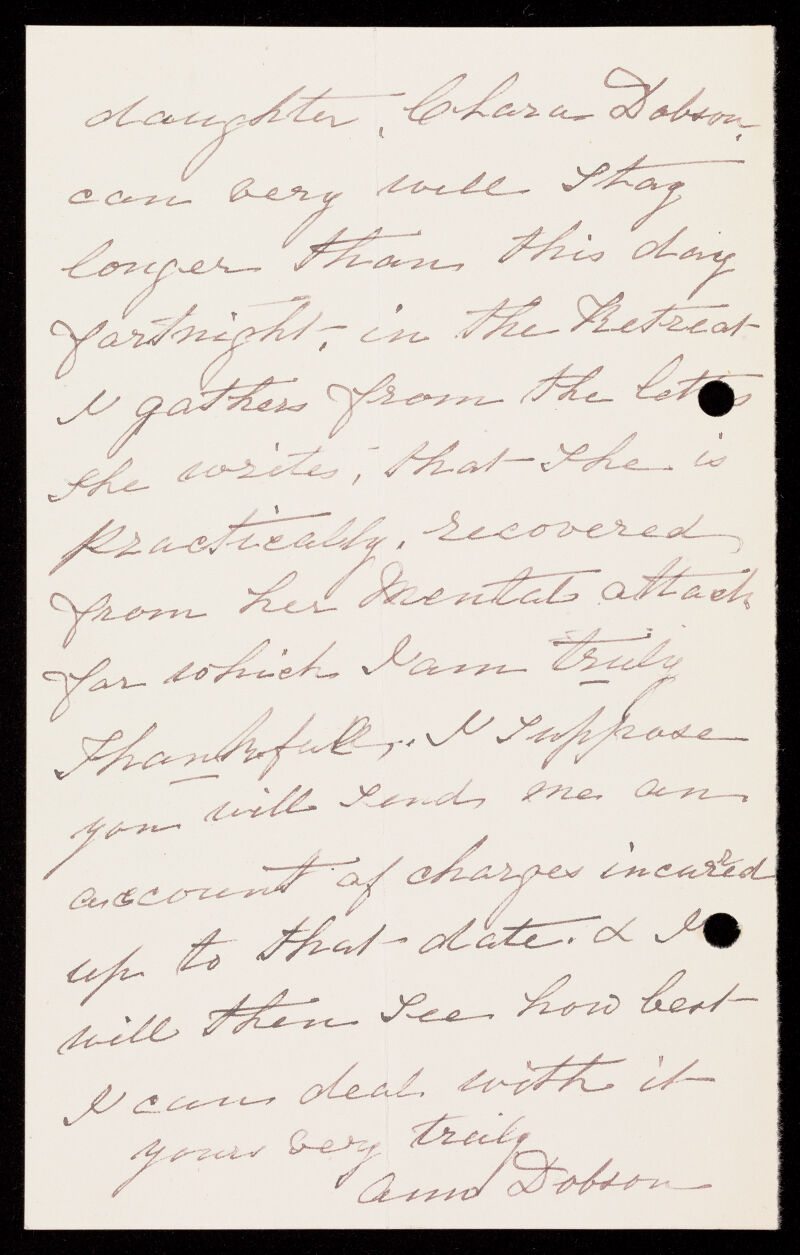 daughter, Chara Dobson,
can very well stay
longer than this day
fortnight, in the Retreat
I gathers from the lett s
she writes, that she is
practically, recovered
from her Mental attack
for which I am truly
thankful,. I suppose
you will send me an
account of charges incurred
up to that date. & I
will then see how best
I can deal with it
yours very truly
Ann Dobson